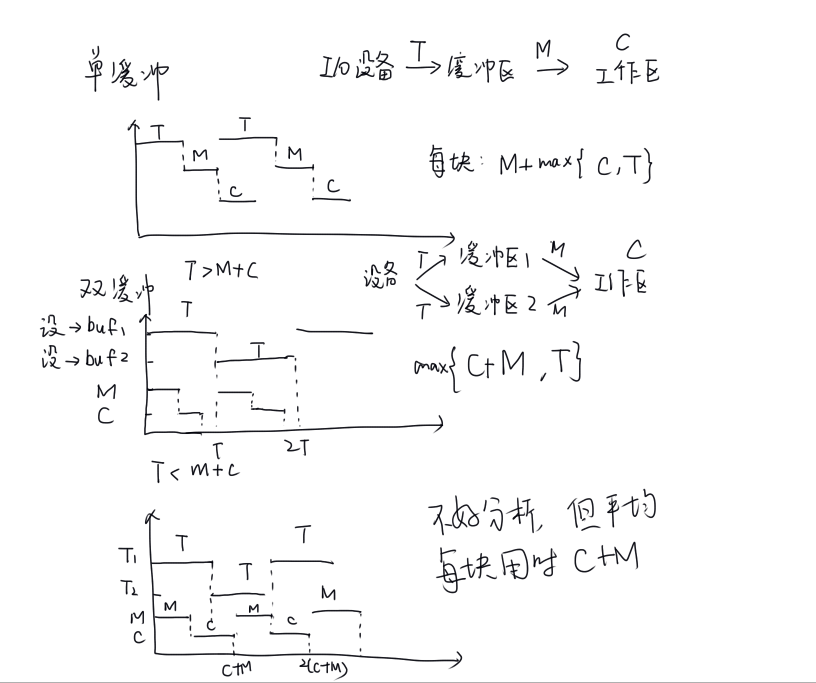 单缓冲
I/O设备 T→ 缓冲区 M→ C 工作区
T T
M M
C C
每块: M+max{ C,T}
T>M+C
双缓冲
设备 T 缓冲区1 M C 工作区
T 缓冲区2 M
T
设→buf1
设→buf2 T
M
C
T 2T
max{ C+M ,T}
T< m+c
T1 T T
T2 T
M M M M
C C C
C+M 2(C+M)
不好分析, 但平均
每块用时 C+M